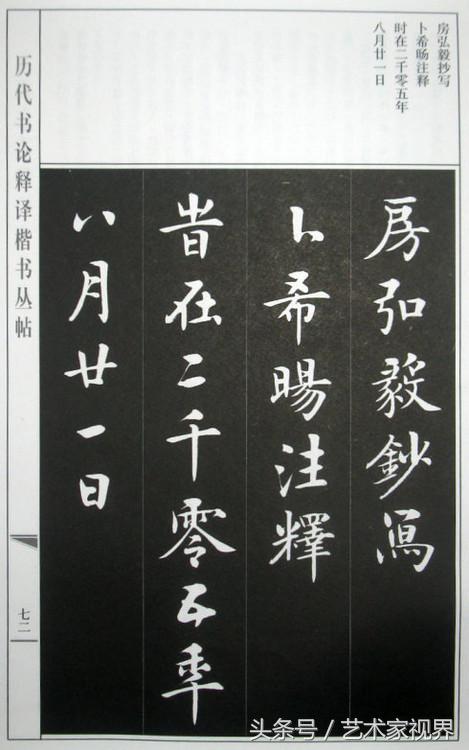 房弘毅抄写
卜希旸注释
时在二千零五年
八月廿一日
房弘毅鈔寫
卜希暘注釋
旹在二千零五年
八月廿一日
历代书论释译楷书丛帖
七二
头条号／艺术家视界